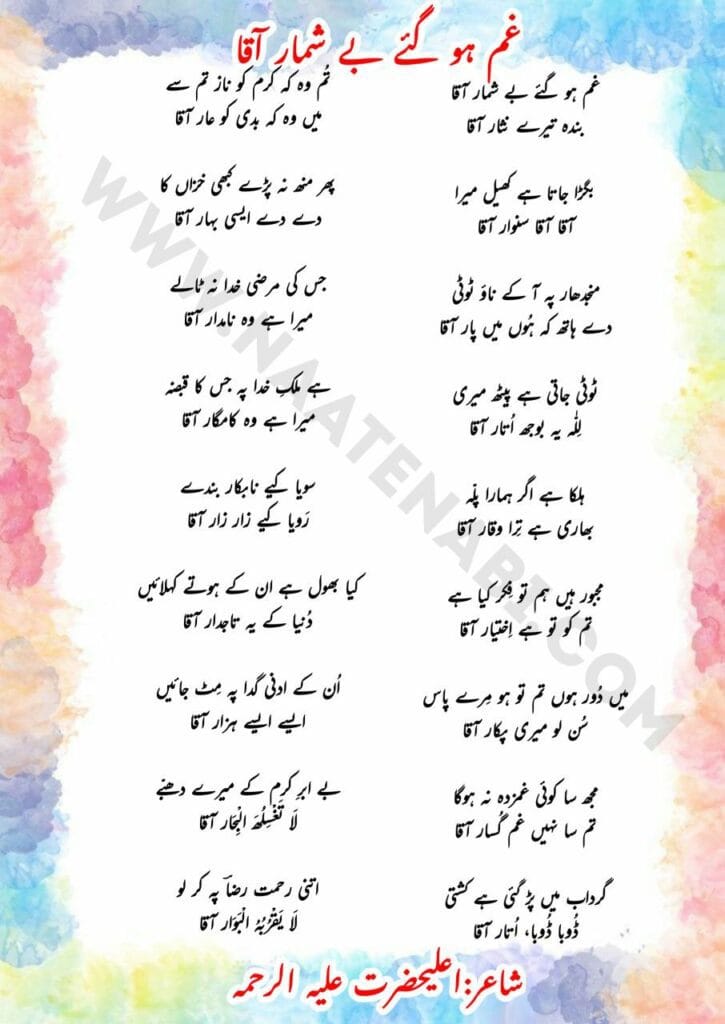 غم ہو گئے بے شمار آقا
غم ہو گئے بے شمار آقا
بندہ تیرے نثار آقا
بگڑا جاتا ہے کھیل میرا
آقا آقا سنوار آقا
منجدھار پہ آ کے ناؤ ٹوٹی
دے ہاتھ کہ ہُوں میں پار آقا
ٹوٹی جاتی ہے پیٹھ میری
لِلّٰہ یہ بوجھ اُتار آقا
ہلکا ہے اگر ہمارا پلّہ
بھاری ہے تِرا وقار آقا
مجبور ہیں ہم تو فِکر کیا ہے
تم کو تو ہے اِختیار آقا
میں دُور ہوں تم تو ہو مِرے پاس
سُن لو میری پکار آقا
مجھ سا کوئی غمزدہ نہ ہوگا
تم سا نہیں غم گُسار آقا
گرداب میں پڑ گئی ہے کشتی
ڈُوبا ڈُوبا، اُتار آقا
تُم وہ کہ کرم کو ناز تم سے
میں وہ کہ بدی کو عار آقا
پھر منھ نہ پڑے کبھی خزاں کا
دے دے ایسی بہار آقا
جس کی مرضی خدا نہ ٹالے
میرا ہے وہ نامدار آقا
ہے ملکِ خدا پہ جس کا قبضہ
میرا ہے وہ کامگار آقا
سویا کیے نابکار بندے
رَویا کیے زار زار آقا
کیا بھول ہے ان کے ہوتے کہلائیں
دُنیا کے یہ تاجدار آقا
اُن کے ادنیٰ گدا پہ مِٹ جائیں
ایسے ایسے ہزار آقا
بے ابرِ کرم کے میرے دھبّے
لَا تَغْسِلُھَا الْبِحَار آقا
اتنی رحمت رضاؔ پہ کر لو
لَا یَقْرُبُہُ الْبَوَار آقا
شاعر:اعلیحضرت علیہ الرحمہ
WWW.NAATENABI.COM